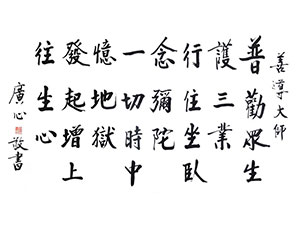 善導大師
普勸眾生
護三業
行住坐臥
念彌陀
一切時中
憶地獄
發起增上
往生心
廣心敬書